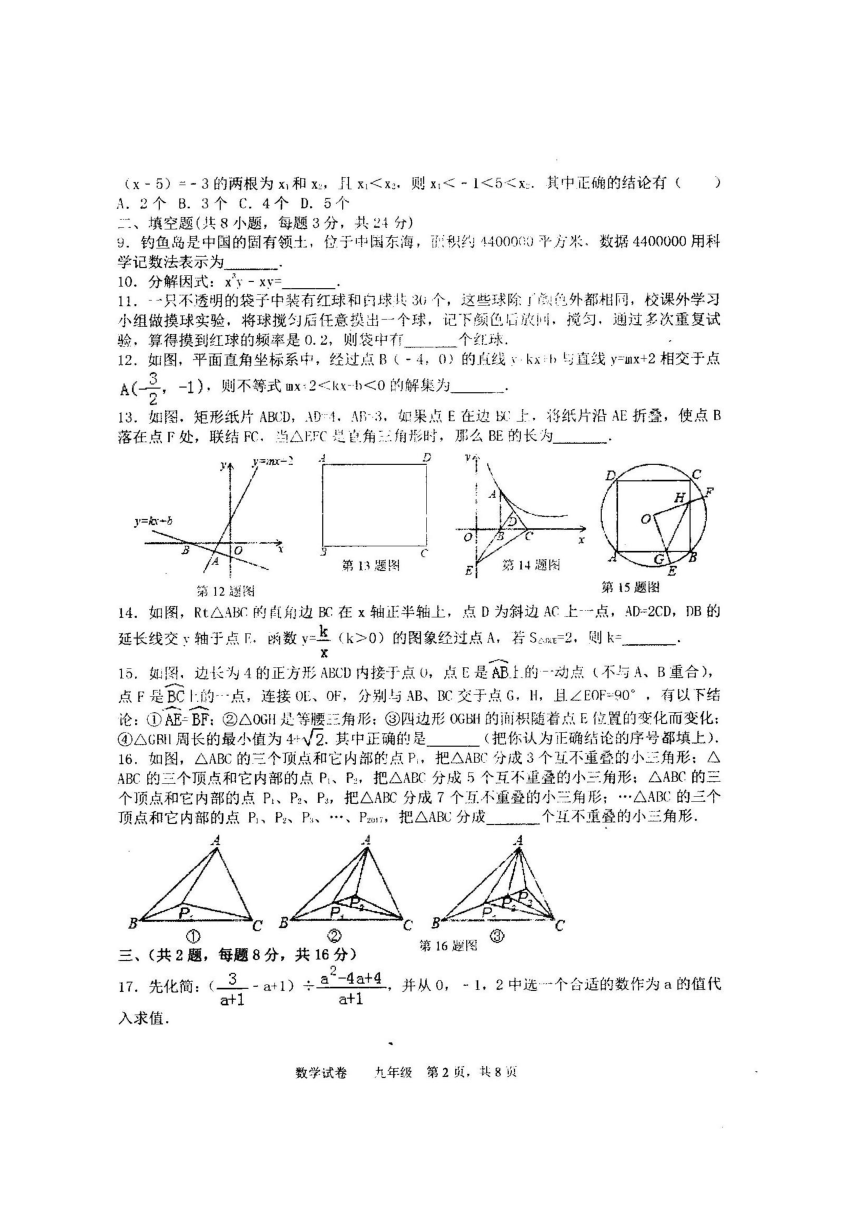 (x﹣5)=﹣3的两根为x₁和x₂，且x₁<x₂，则x₁<﹣1<5<x₂．其中正确的结论有（　　）
A．2个 B．3个 C．4个 D．5个
二、填空题(共8小题，每题3分，共24分)
9．钓鱼岛是中国的固有领土，位于中国东海，面积约4400000平方米，数据4400000用科
学记数法表示为______．
10．分解因式：x³y﹣xy=______．
11．一只不透明的袋子中装有红球和白球共30个，这些球除了颜色外都相同，校课外学习
小组做摸球实验，将球搅匀后任意摸出一个球，记下颜色后放回，搅匀，通过多次重复试
验，算得摸到红球的频率是0.2，则袋中有______个红球．
12．如图，平面直角坐标系中，经过点B（﹣4，0）的直线y=kx+b与直线y=mx+2相交于点
A(-3/2, -1)，则不等式mx+2<kx+b<0的解集为______．
13．如图，矩形纸片ABCD，AD=4，AB=3，如果点E在边BC上，将纸片沿AE折叠，使点B
落在点F处，联结FC，当△EFC是直角三角形时，那么BE的长为______．
y y=mx+2
y=kx+b
B A O x
第12题图
A D
B C
第13题图
y
A
D
O B C x
E
第14题图
D C
H F
O
A G B
E
第15题图
14．如图，Rt△ABC的直角边BC在x轴正半轴上，点D为斜边AC上一点，AD=2CD，DB的
延长线交y轴于点E，函数y=k/x（k>0）的图象经过点A，若S△BCE=2，则k=______．
15．如图，边长为4的正方形ABCD内接于点O，点E是AB上的一动点（不与A、B重合），
点F是BC上的一点，连接OE、OF，分别与AB、BC交于点G，H，且∠EOF=90°，有以下结
论：①AE=BF；②△OGH是等腰三角形；③四边形OGBH的面积随着点E位置的变化而变化；
④△GBH周长的最小值为4+√2．其中正确的是______（把你认为正确结论的序号都填上）．
16．如图，△ABC的三个顶点和它内部的点P₁，把△ABC分成3个互不重叠的小三角形；△
ABC的三个顶点和它内部的点P₁、P₂，把△ABC分成5个互不重叠的小三角形；△ABC的三
个顶点和它内部的点P₁、P₂、P₃，把△ABC分成7个互不重叠的小三角形；…△ABC的三个
顶点和它内部的点P₁、P₂、P₃、…、P₂₀₁₇，把△ABC分成______个互不重叠的小三角形．
A
B P₁ C
①
A
B P₁ P₂ C
②
A
B P₁ P₂ P₃ C
③
第16题图
三、（共2题，每题8分，共16分）
17．先化简：（3/(a+1)﹣a+1）÷(a²-4a+4)/(a+1)，并从0，﹣1，2中选一个合适的数作为a的值代
入求值．
数学试卷 九年级 第2页，共8页